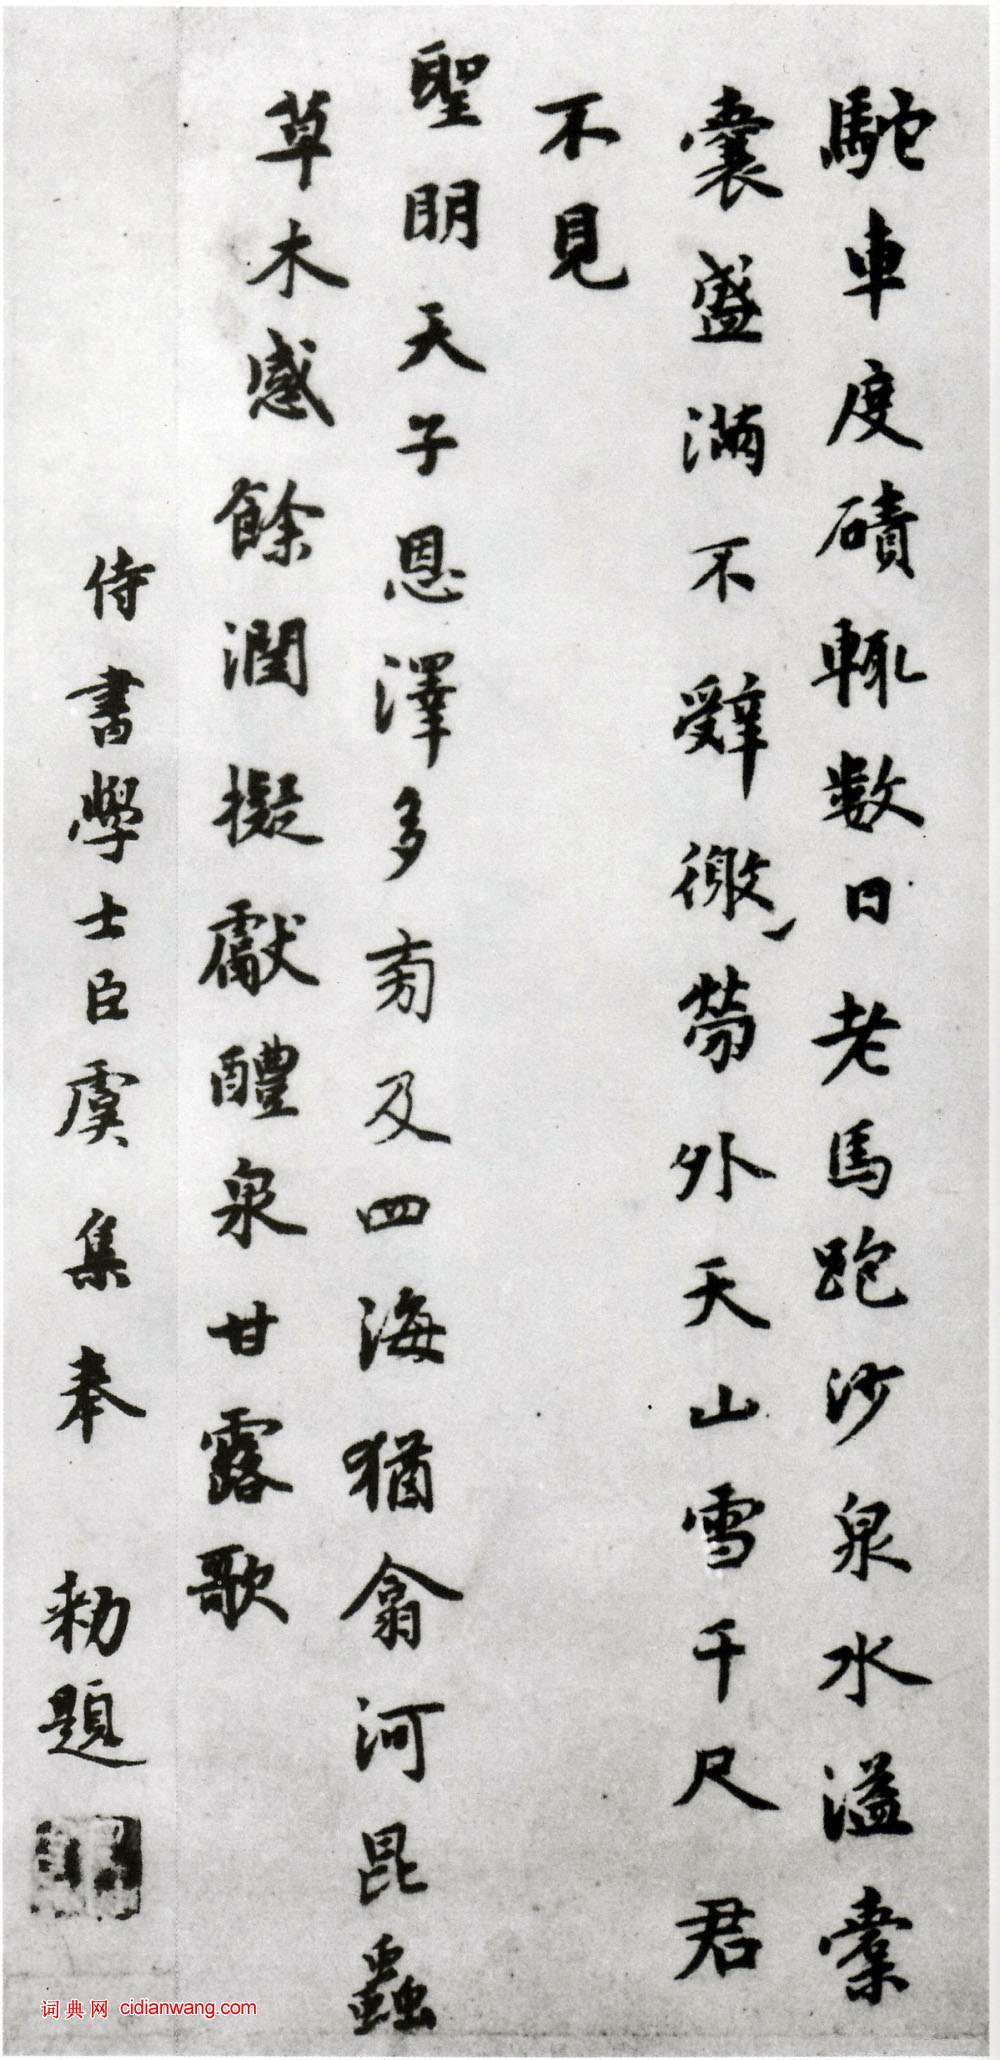 駝車度磧輒數日老馬跑沙泉水溢橐
囊盛滿不辭徼勞外天山雪千尺君
不見
聖明天子恩澤多旁及四海猶翕河昆蟲
草木感餘潤擬獻醴泉甘露歌
侍書學士臣虞集奉 勑題
词典网 cidianwang.com